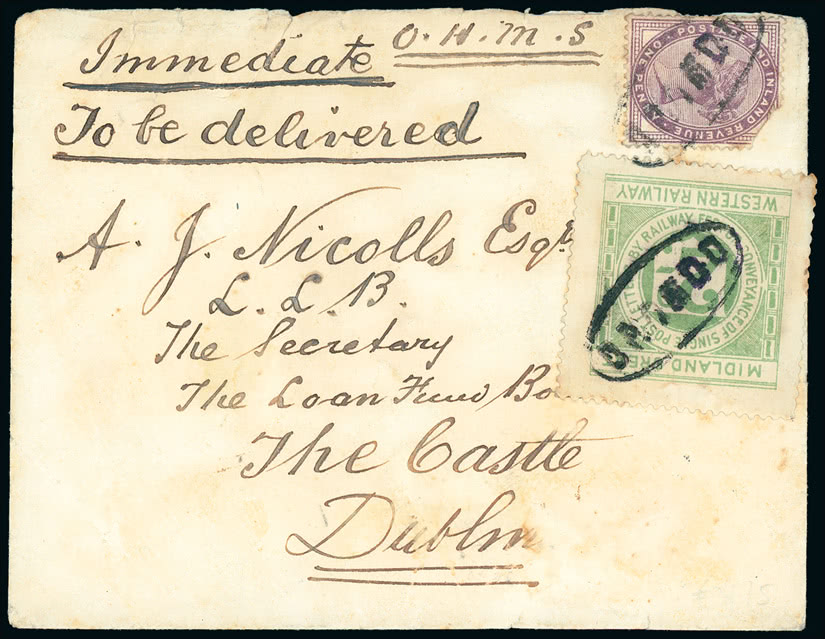 O. H. M. S
Immediate
To be delivered
A. J. Nicolls Esqr
L. L. B.
The Secretary
The Loan Fund Bo
The Castle
Dublin
POSTAGE AND INLAND REVENUE
ONE PENNY
WESTERN RAILWAY
BY RAILWAY
CONVEYANCE OF SINGLE POST
MIDLAND GREAT